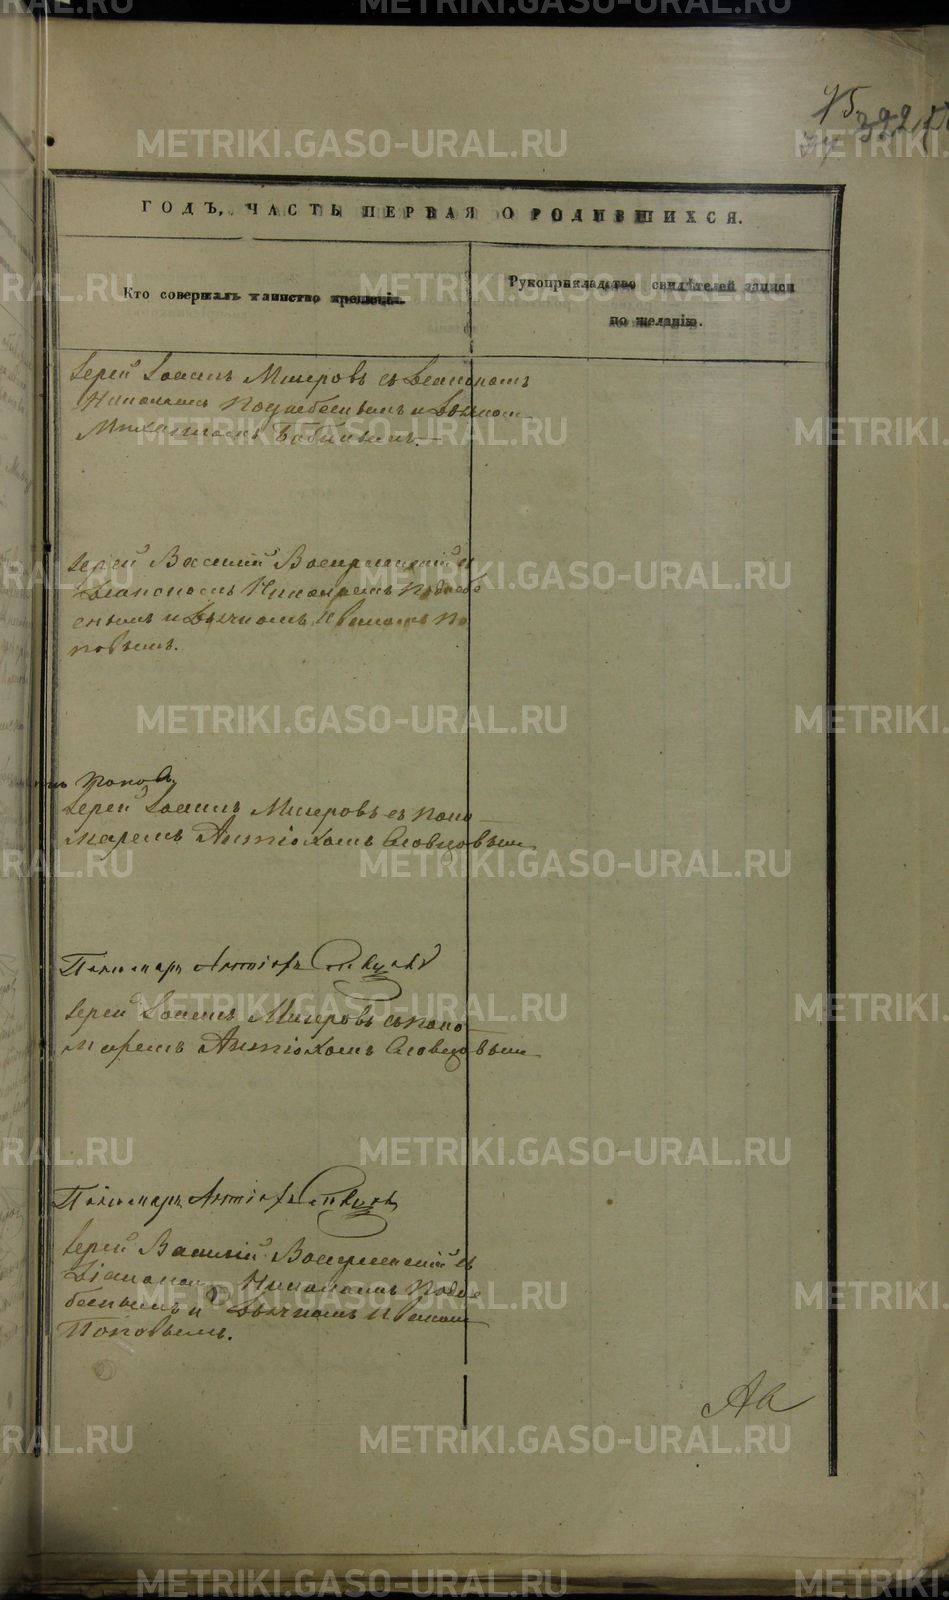 METRIKI.GASO-URAL.RU
75.
322
ГОДЪ, ЧАСТЬ ПЕРВАЯ О РОДИВШИХСЯ.
Кто совершалъ таинство крещенія.
Рукоприкладство свидѣтелей записи
по желанію.
Іерей Іоаннъ Мизеровъ съ Діакономъ
Николаемъ Поднебеснымъ и Дьячкомъ
Михаиломъ Бабинымъ.—
Іерей Василій Воскресенскій и
Діаконъ Николаемъ Поднебе
снымъ и Дьячкомъ Иваномъ По
повымъ.
Попо
Іерей Іоаннъ Мизеровъ съ поно
маремъ Антіохомъ Словцовым
Пономарь Антіохъ
Іерей Іоаннъ Мизеровъ съ поно
маремъ Антіохомъ Словцовым
Пономарь Антіохъ
Іерей Василій Воскресенскій съ
Діакономъ Николаемъ Подне
беснымъ и Дьячкомъ Иваном
Поповымъ.